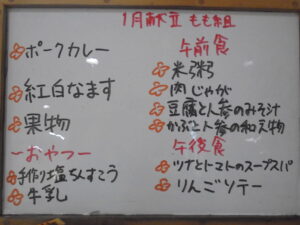 1月献立 もも組
ポークカレー
紅白なます
果物
～おやつ～
手作り塩ちんすこう
牛乳
午前食
米粥
肉じゃが
豆腐と人参のみそ汁
かぶと人参の和え物
午後食
ツナとトマトのスープスパ
りんごソテー